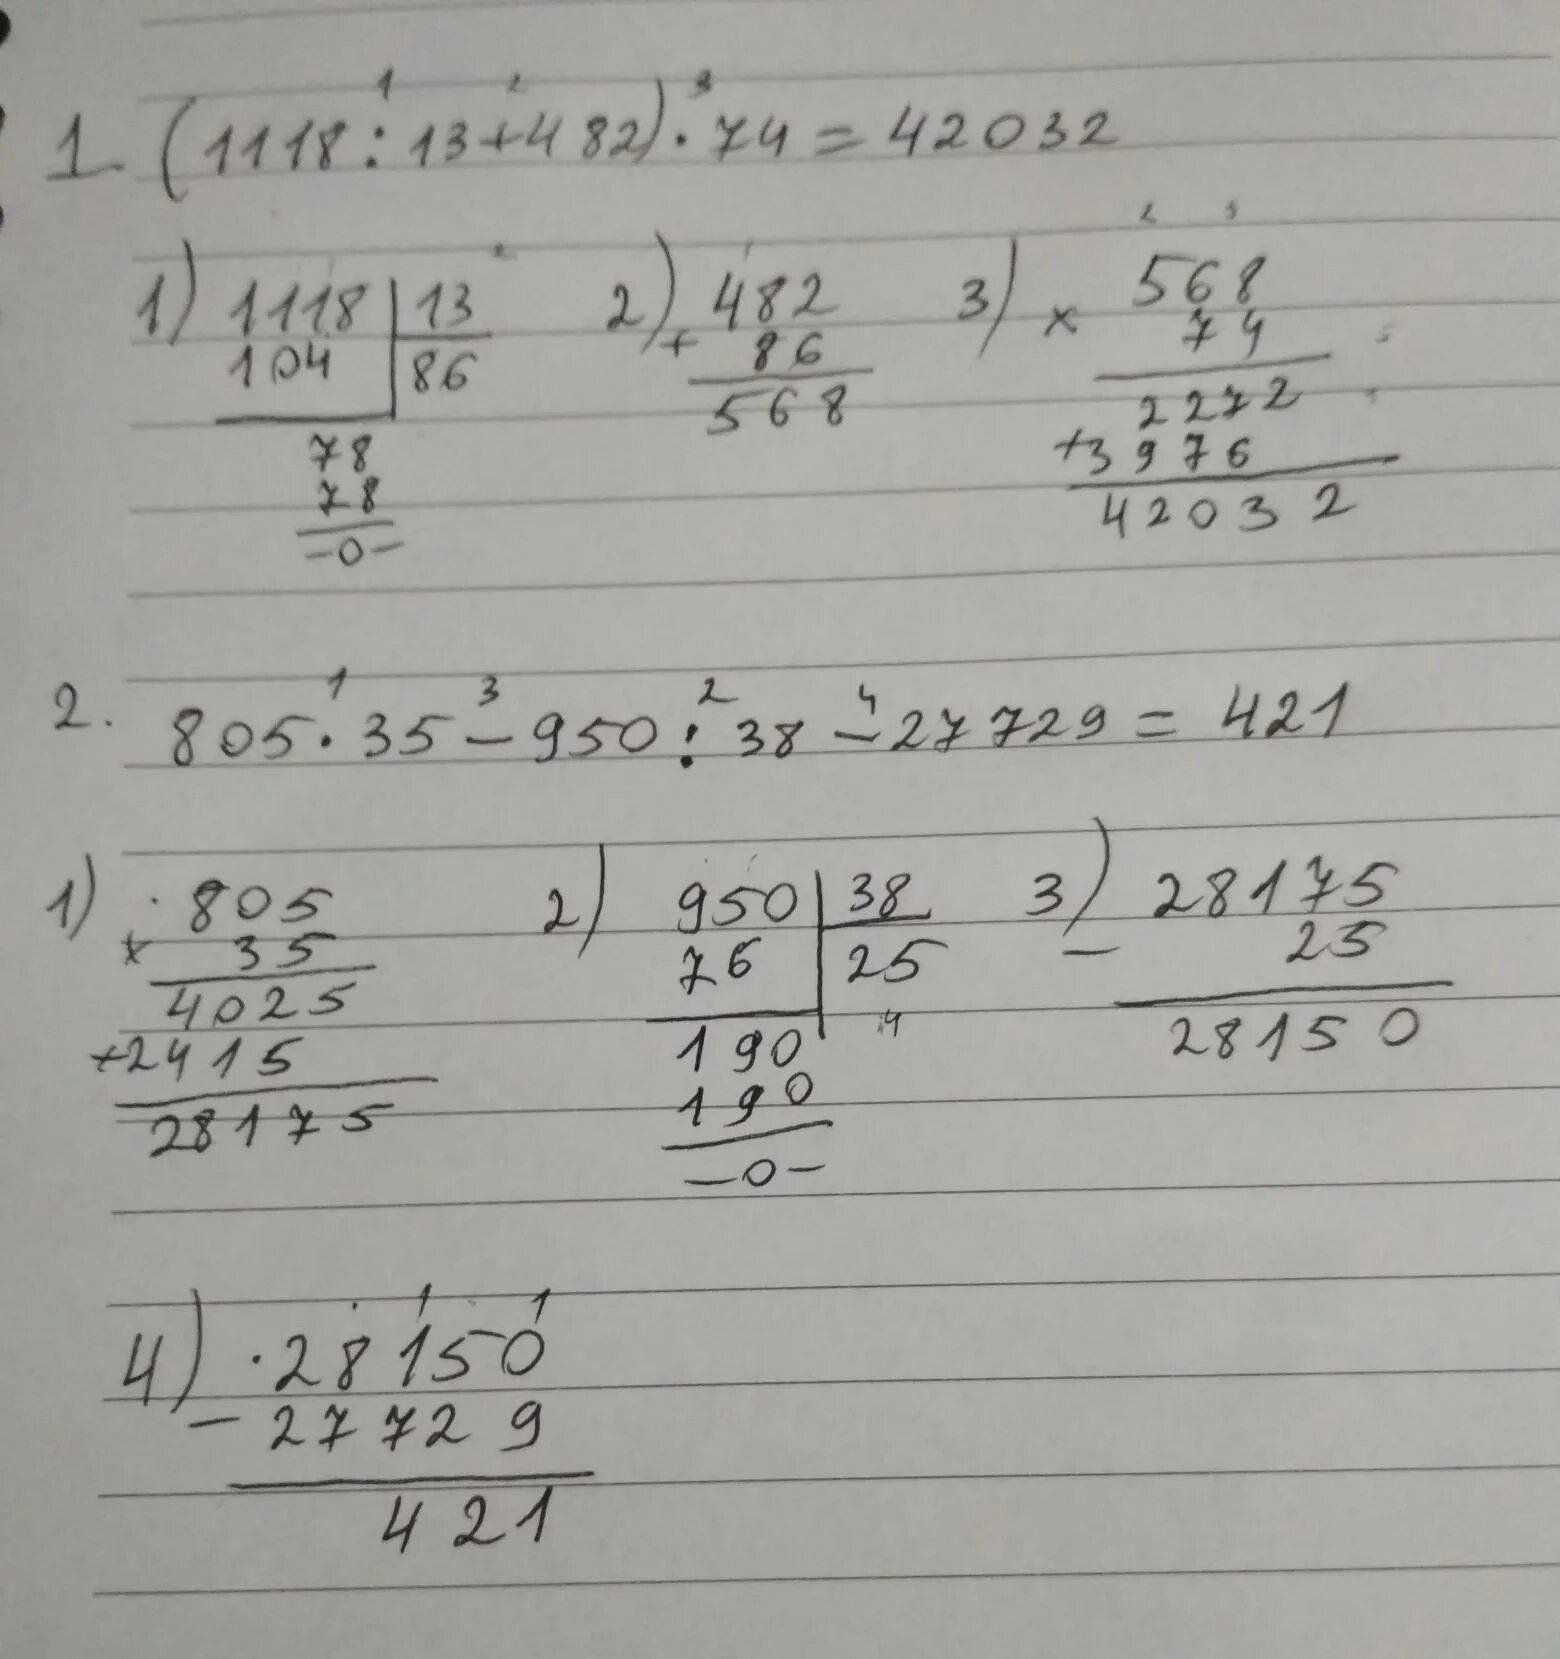 1 2 3
1. (1118 : 13 + 482) · 74 = 42032
1) 1118 | 13
104 | 86
78
78
-0-
2) 482
+ 86
568
3) 2 3
× 568
74
2272
+3976
42032
1 3 2 4
2. 805 · 35 - 950 : 38 - 27729 = 421
1) 805
× 35
4025
+2415
28175
2) 950 | 38
76 | 25
190
190
-0-
4
3) 28175
- 25
28150
1 1
4) 28150
- 27729
421